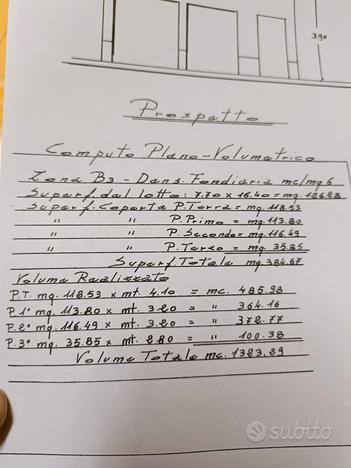 390
Prospetto
Computo Plano-Volumetrico
Zona B3 - Dens. Fondiaria mc/mq 6
Superf. del lotto: 7.70 x 16.40 = mq. 126.28
Superf. Coperta P. Terra = mq. 118.53
" " P. Primo = mq. 113.80
" " P. Secondo = mq. 116.49
" " P. Terzo = mq. 35.85
Superf. Totale mq. 384.67
Volume Realizzato
P.T. mq. 118.53 x mt. 4.10 = mc. 485.98
P. 1° mq. 113.80 x mt. 3.20 = " 364.16
P. 2° mq. 116.49 x mt. 3.20 = " 372.77
P. 3° mq. 35.85 x mt. 2.80 = " 100.38
Volume Totale mc. 1323.29
subito